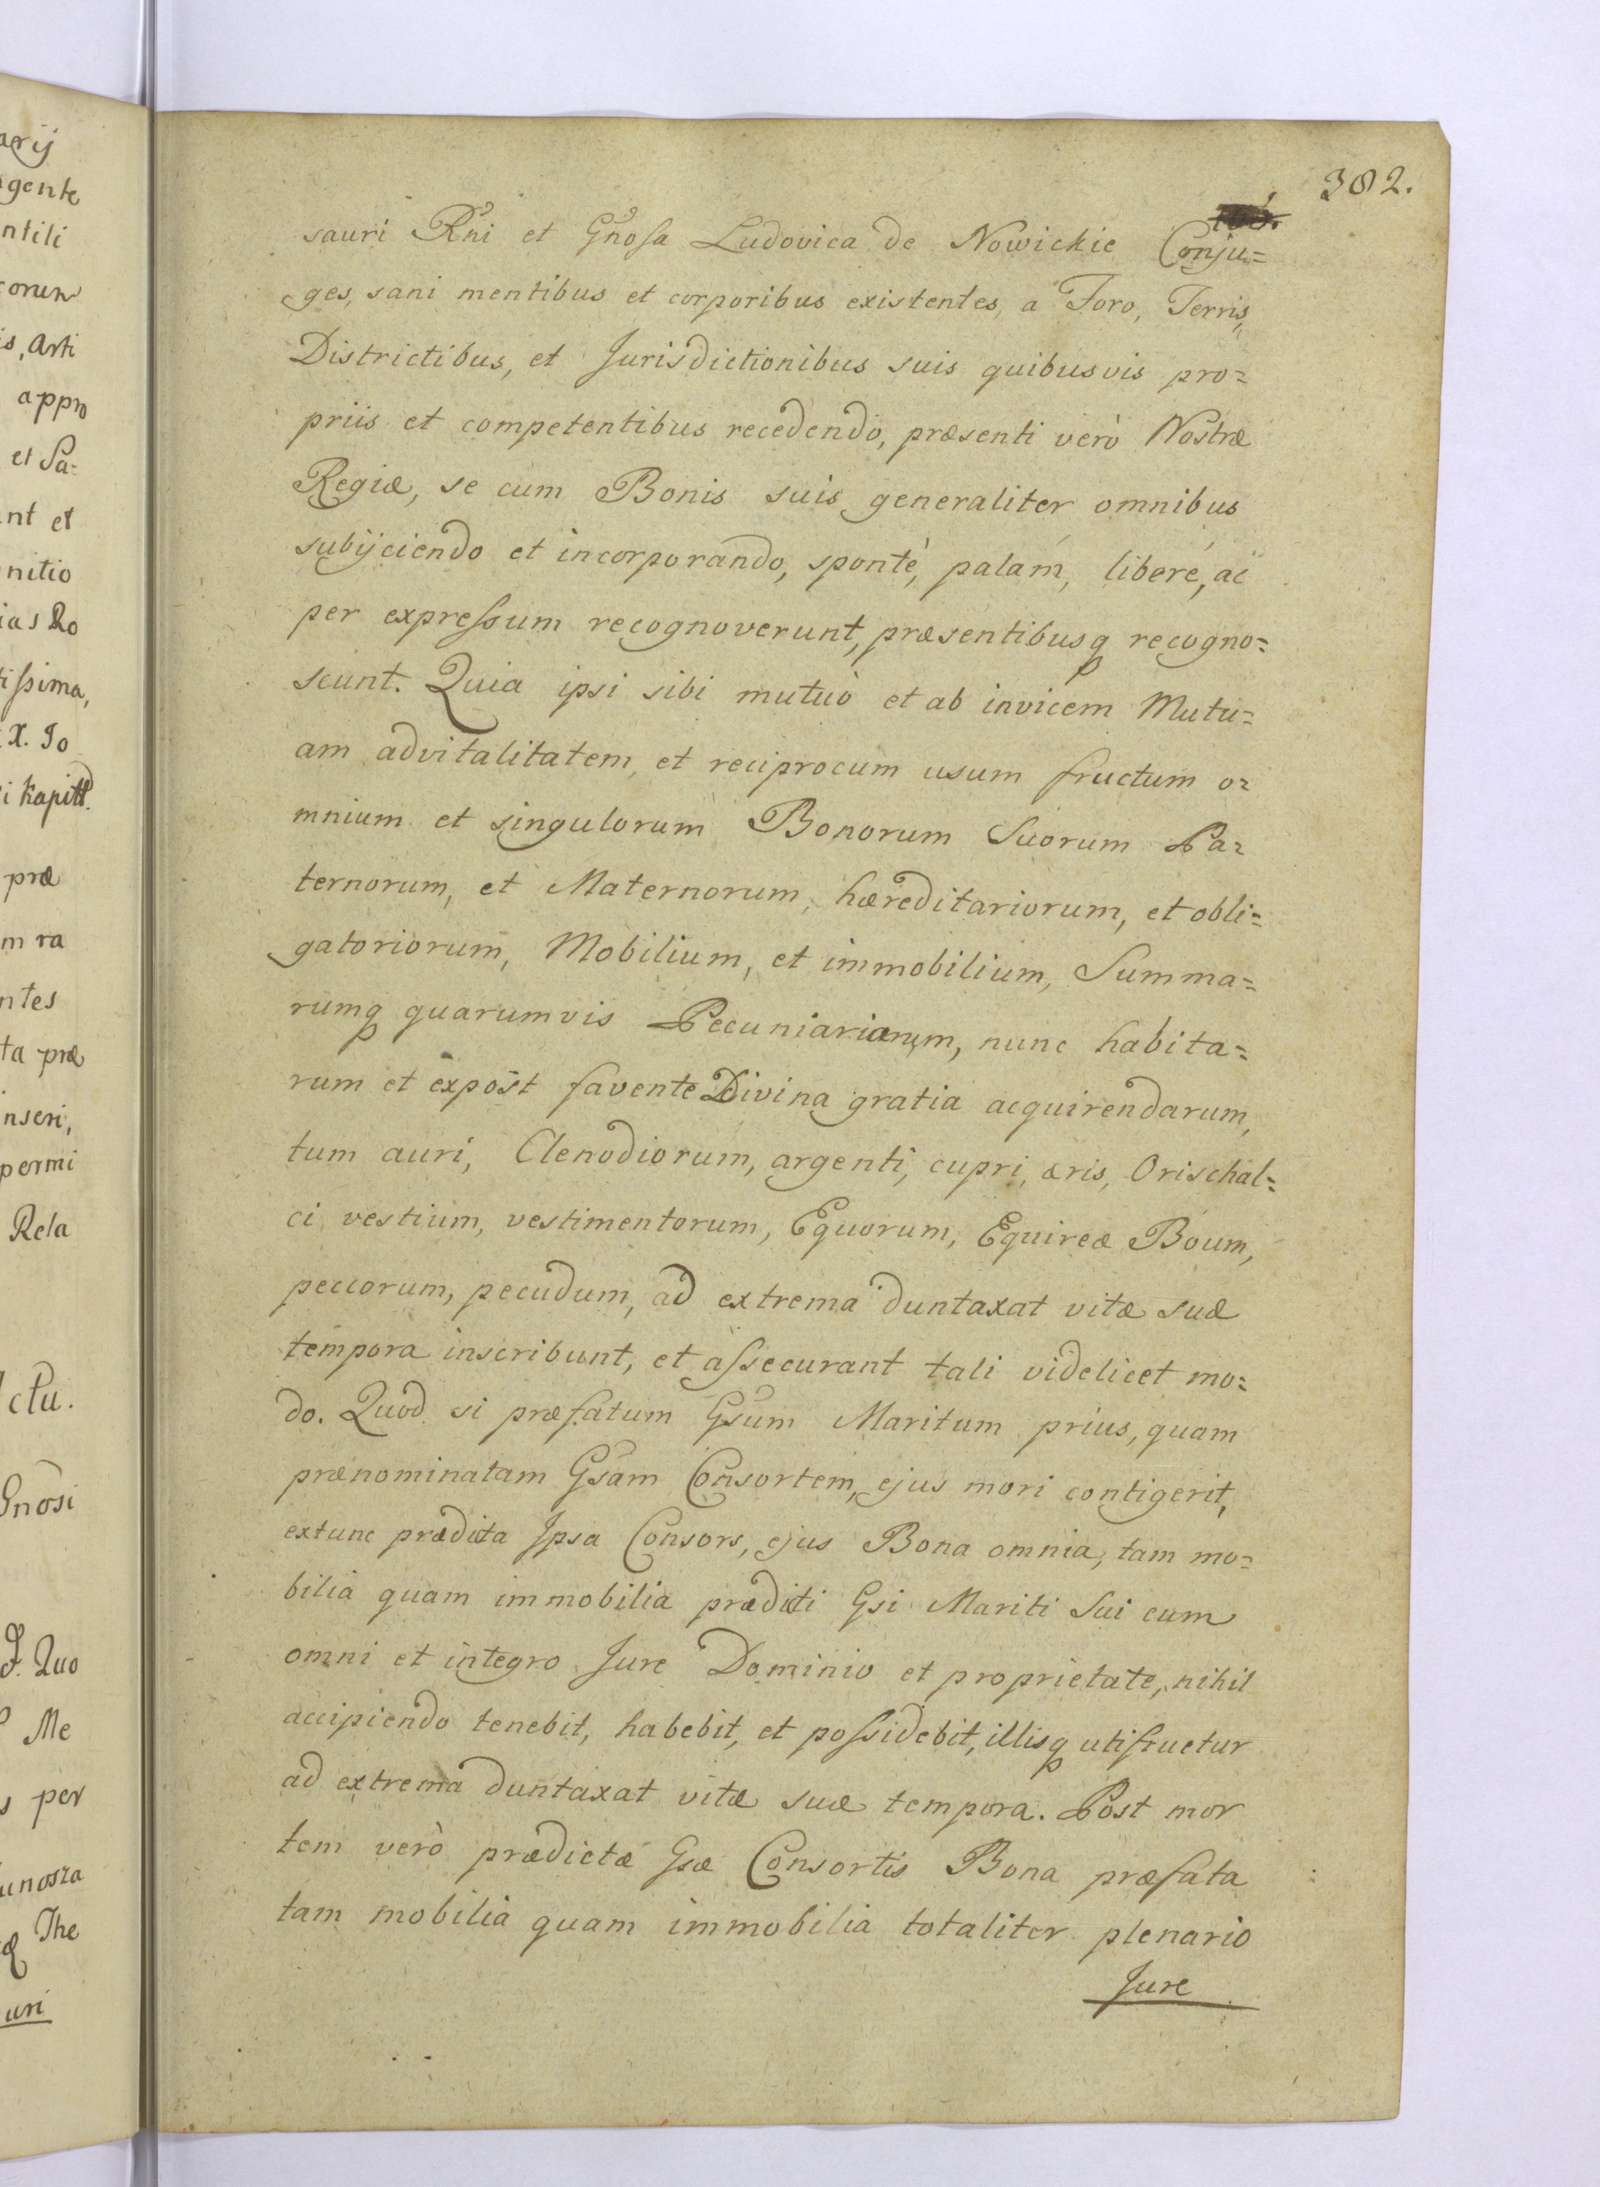 382.
sauri Rni et Gnosa Ludovica de Nowickie Conju=
ges, sani mentibus et corporibus existentes, a Foro, Terris,
Districtibus, et Jurisdictionibus suis quibusvis pro=
priis et competentibus recedendo, præsenti verò Nostræ
Regiæ, se cum Bonis suis generaliter omnibus
subijciendo et incorporando, spontè, palám, liberé, ac
per expressum recognoverunt, præsentibusq recogno=
scunt. Quia ipsi sibi mutuò et ab invicem Mutu=
am advitalitatem, et reciprocum usum fructum o=
mnium et singulorum Bonorum Suorum Pa=
ternorum, et Maternorum, hæreditariorum, et obli=
gatoriorum, Mobilium, et immobilium, Summa=
rumq quarumvis Pecuniariarum, nunc habita=
rum et expost favente Divina gratia acquirendarum,
tum auri, Clenodiorum, argenti, cupri, æris, Orischal=
ci vestium, vestimentorum, Equorum, Equireæ Boum,
peccorum, pecudum, ad extrema duntaxat vitæ suæ
tempora inscribunt, et assecurant tali videlicet mo=
do. Quod si præfatum Gsum Maritum prius, quam
prænominatam Gsam Consortem, ejus mori contigerit,
extunc prædicta Ipsa Consors, ejus Bona omnia, tam mo=
bilia quam immobilia prædicti Gsi Mariti Sui cum
omni et integro Jure Dominio et proprietate, nihil
accipiendo tenebit, habebit, et possidebit, illisq utifruetur
ad extrema duntaxat vitæ suæ tempora. Post mor
tem verò prædictæ Gsæ Consortis Bona præfata
tam mobilia quam immobilia totaliter plenario
Jure
arij
gente
ntili
is, arti
appro
et Sa=
nt et
nitio
ias Ro
tissima,
X. Jo
i Kapitl.
præ
m ra
ntes
ta præ
inseri,
permi
Rela
ctu.
Gnosi
Quo
Me
s per
unosza
The
uri